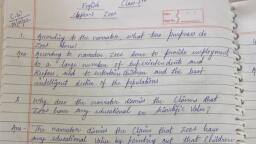 English
Class-
Zoos
1. According to the narrator, what true purposes do
Zoos have?
Ans- According to narrator Zoos have to provide employment
to a large number of superintendents and
keepers and to entertain children and the less
intelligent section of the populations
2. Why does the narrator dismiss the claims that
Zoos have any educational or scientific value?
Ans- The narrator dismiss the claim that Zoos have
any educational value by pointing out that children